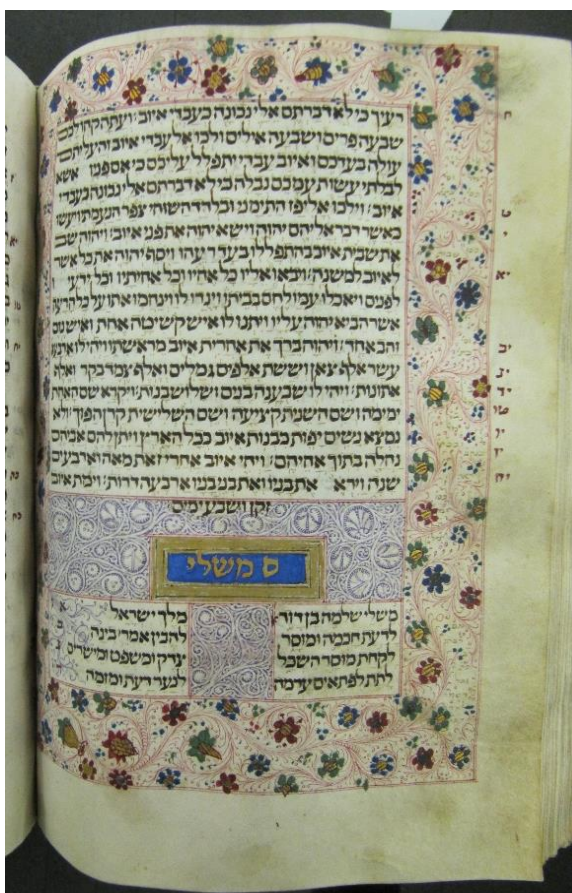 רעיך כי לא דברתם אלי נכונה כעבדי איוב׃ ועתה קחו לכם
שבעה פרים ושבעה אילים ולכו אל עבדי איוב והעליתם
עולה בעדכם ואיוב עבדי יתפלל עליכם כי אם פניו אשא
לבלתי עשות עמכם נבלה כי לא דברתם אלי נכונה כעבדי
איוב׃ וילכו אליפז התימני ובלדד השוחי צפר הנעמתי ויעשו
כאשר דבר אליהם יהוה וישא יהוה את פני איוב׃ ויהוה שב
את שבית איוב בהתפללו בעד רעהו ויסף יהוה את כל אשר
לאיוב למשנה׃ ויבאו אליו כל אחיו וכל אחיתיו וכל ידעיו
לפנים ויאכלו עמו לחם בביתו וינדו לו וינחמו אתו על כל הרעה
אשר הביא יהוה עליו ויתנו לו איש קשיטה אחת ואיש נזם
זהב אחד׃ ויהוה ברך את אחרית איוב מראשתו ויהי לו
עשר אלף צאן וששת אלפים גמלים ואלף צמד בקר ואלף
אתונות׃ ויהי לו שבענה בנים ושלוש בנות׃ ויקרא שם האחת
ימימה ושם השנית קציעה ושם השלישית קרן הפוך׃ ולא
נמצא נשים יפות כבנות איוב בכל הארץ ויתן להם אביהם
נחלה בתוך אחיהם׃ ויהי איוב אחרי זאת מאה וארבעים
שנה וירא את בניו ואת בני בניו ארבעה דרות׃ וימת איוב
זקן ושבע ימים
ס משלי
משלי שלמה בן דוד מלך ישראל
לדעת חכמה ומוסר להבין אמרי בינה
לקחת מוסר השכל צדק ומשפט ומישרים
לתת לפתאים ערמה לנער דעת ומזמה
ח
ט
י
יא
יב
יג
יד
טו
יו
יז
יח